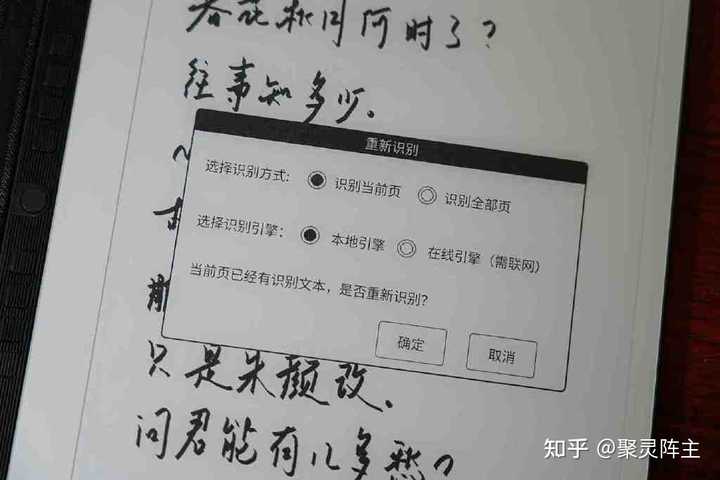 春花秋月何时了?
往事知多少。
重新识别
选择识别方式: 识别当前页 识别全部页
选择识别引擎: 本地引擎 在线引擎（需联网）
当前页已经有识别文本，是否重新识别?
确定 取消
只是朱颜改.
问君能有几多愁?
知乎 @聚灵阵主